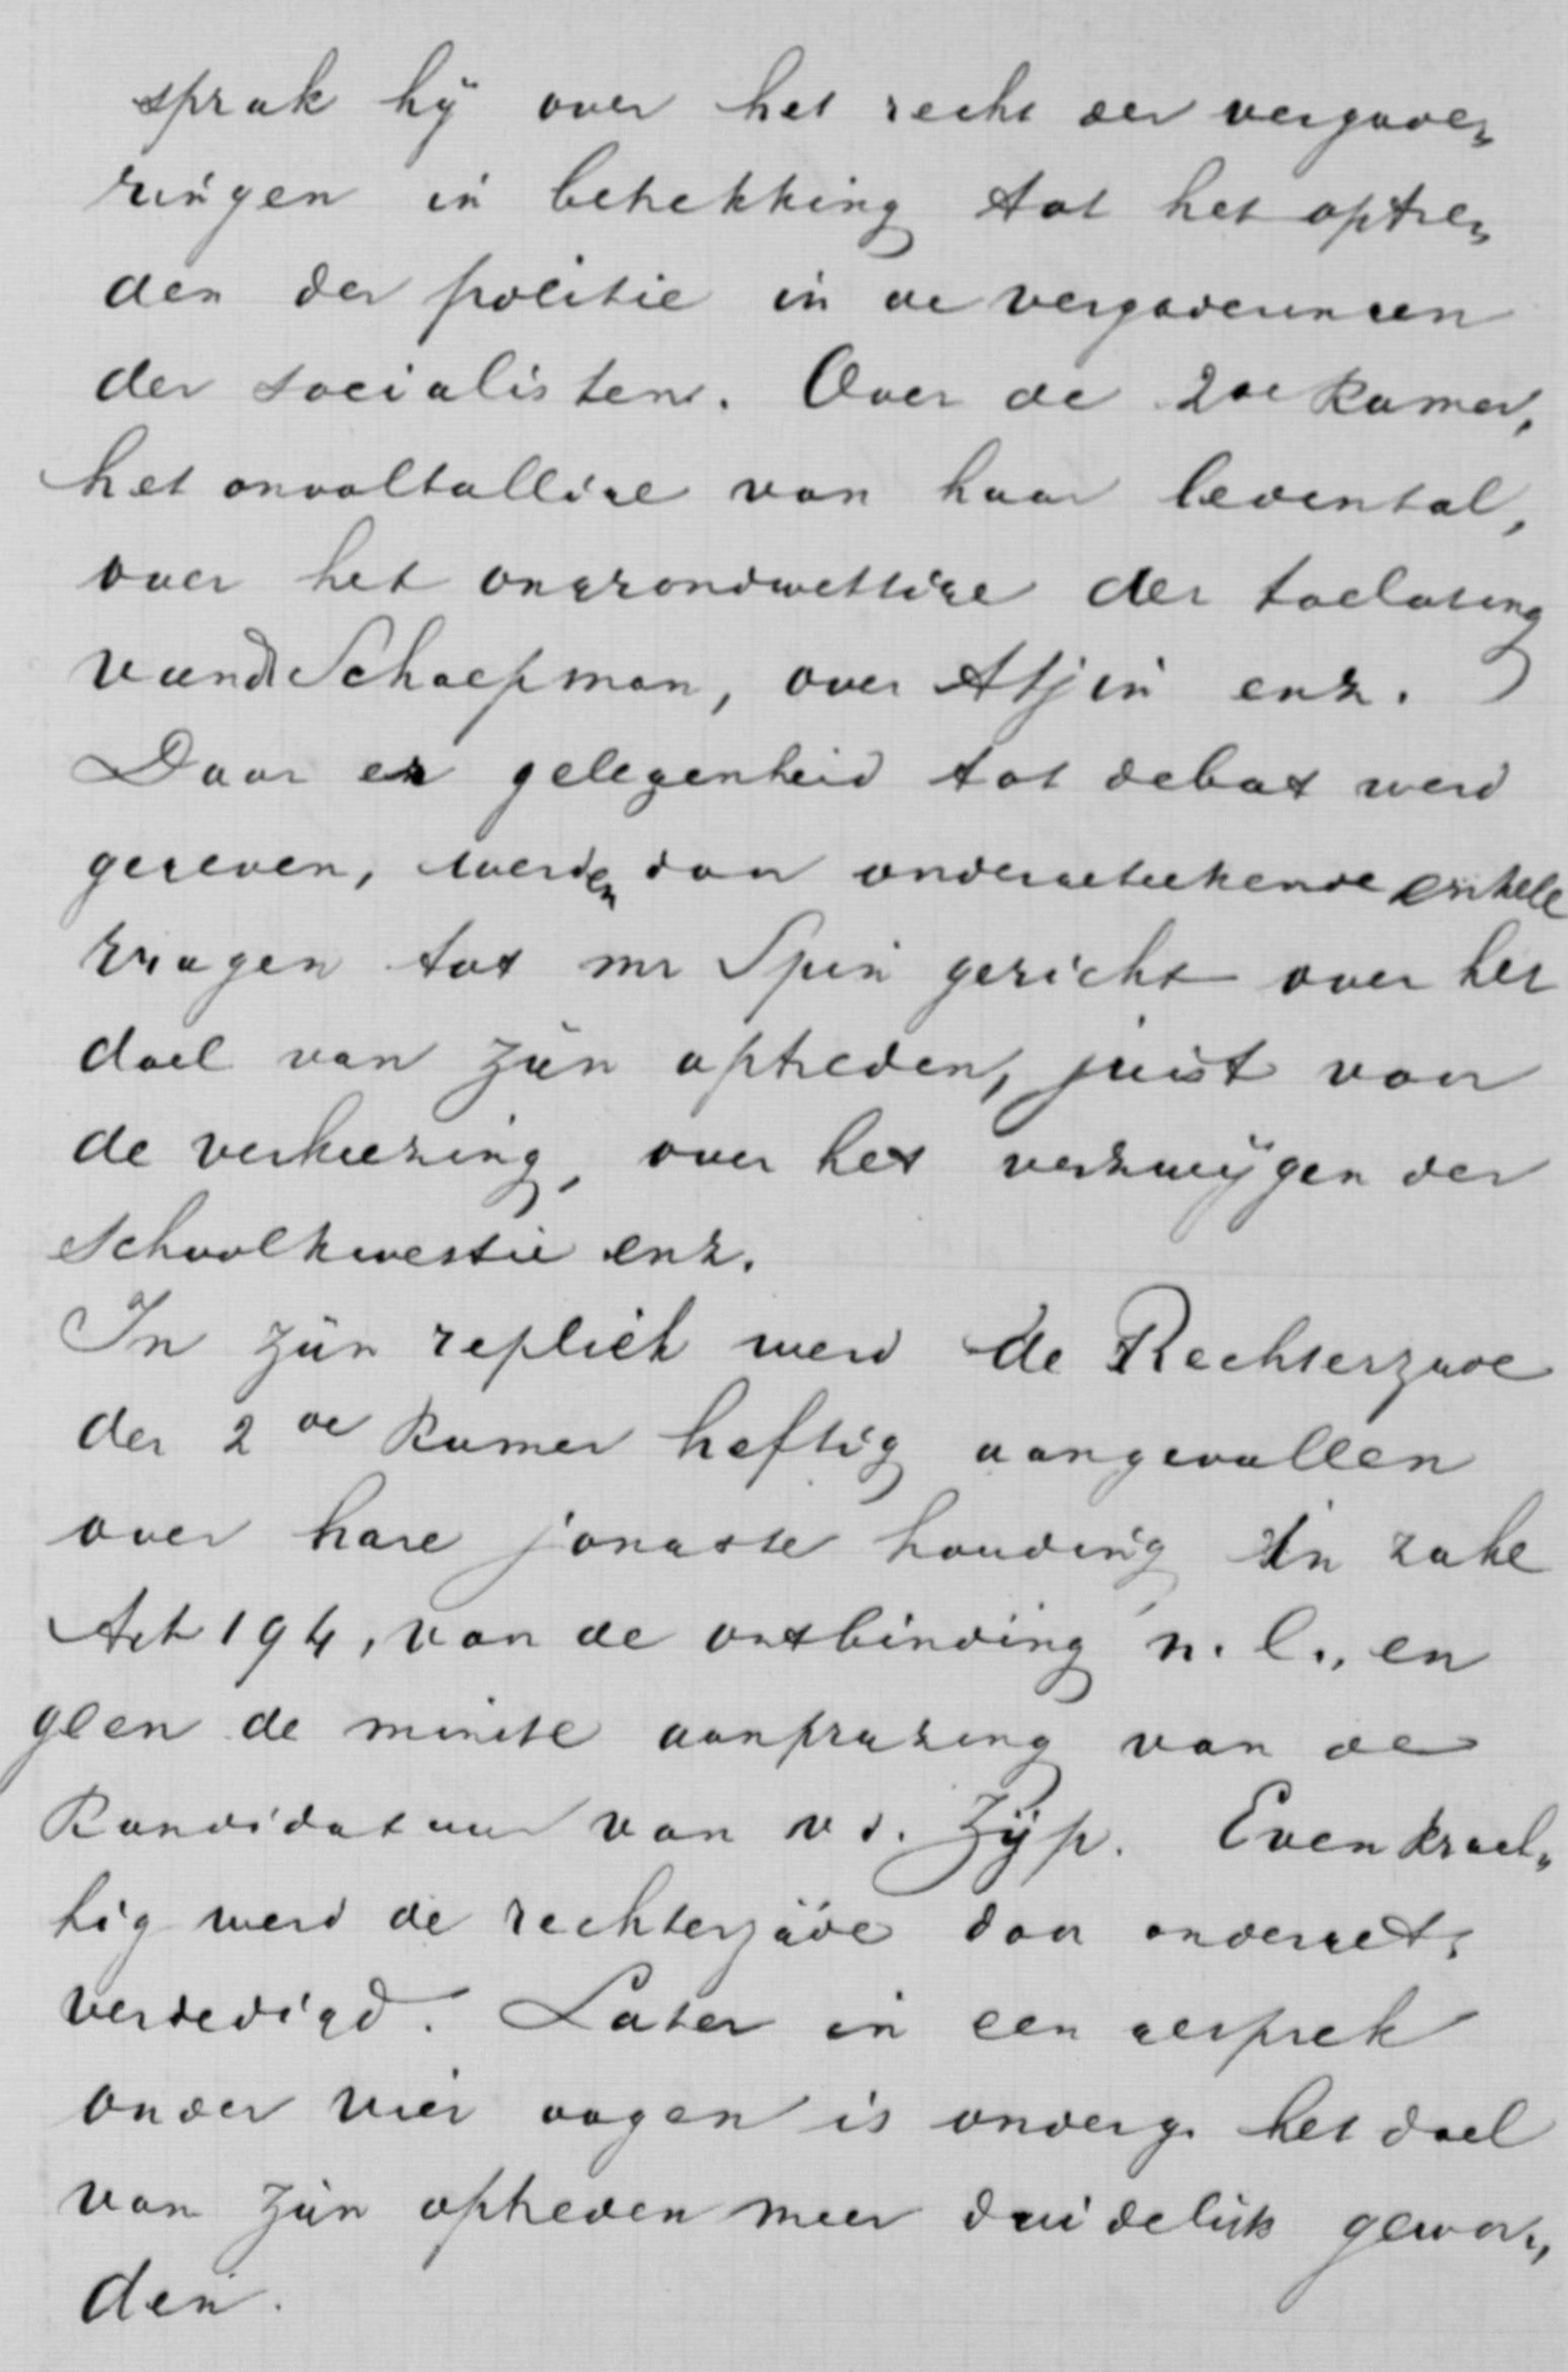 sprak hij over het recht der vergade„
ringen in betrekking tot het optre„
den der politie in de vergaderingen
der socialisten. Over de 2de Kamer,
het onvoltallige van haar ledental,
over het ongrondwettige der toelating
van dr Schaepman, over Atjin enz.
Daar er gelegenheid tot debat werd
gegeven, werden door ondergeteekende enkele
vragen tot mr Spin gericht over het
doel van zijn optreden, juist voor
de verkiezing, over het verzwijgen der
schoolkwestie enz.
In zijn repliek werd de Rechterzijde
der 2de Kamer heftig aangevallen
over hare jongste houding in zake
Art 194, van de ontbinding n.l., en
geen de minste aanprijzing van de
Kandidatuur van v d. Zijp. Even krach„
tig werd de rechterzijde door onderget.
verdedigd. Later in een gesprek
onder vier oogen is onderg. het doel
van zijn optreden meer duidelijk gewor„
den.